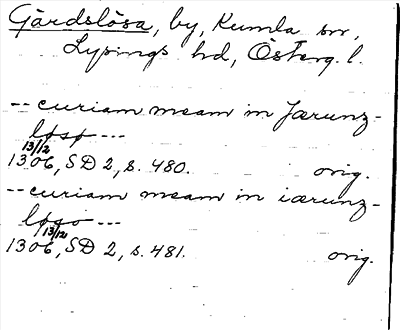 Gårdslösa, by, Kumla sn,
Lysings hd, Österg. l.
-- curiam meam in Jærunz-
løsø ---
13/12
1306, SD 2, s. 480. orig.
-- curiam meam in iærunz-
løso ---
13/12
1306, SD 2, s. 481. orig.